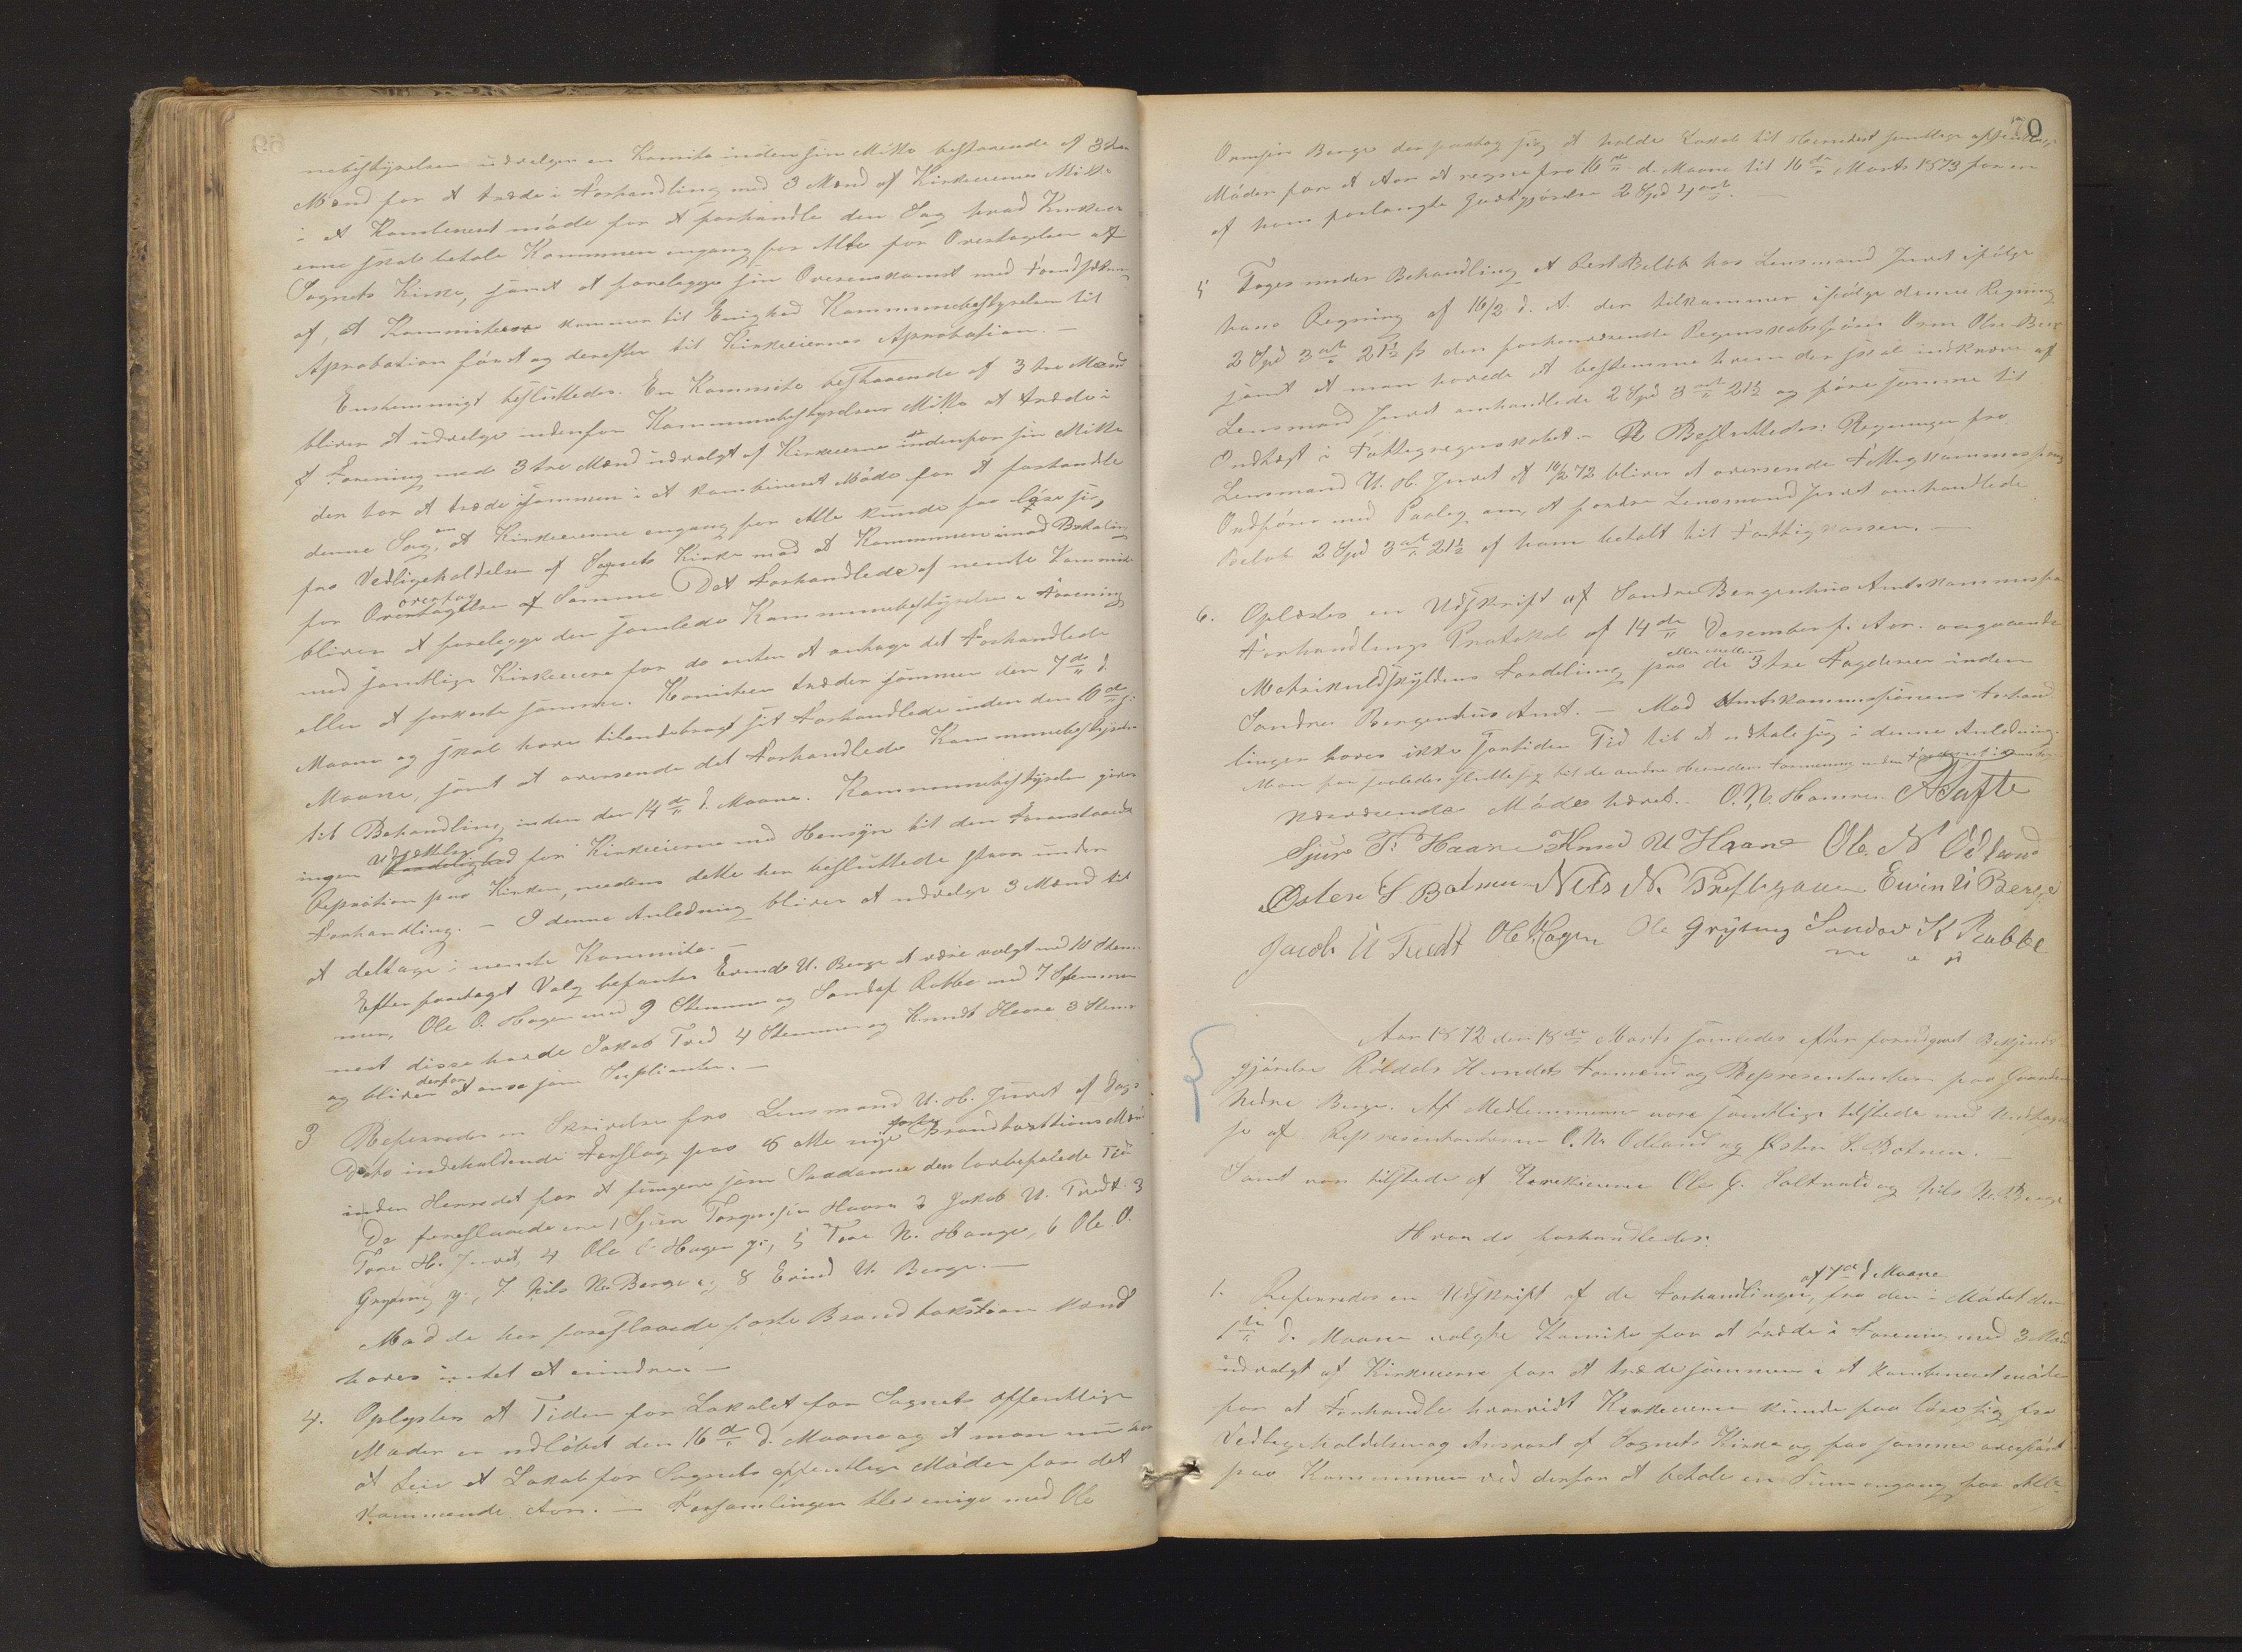 nebestyrelsen udvelger en Komite inden sin Mitte bestaaende af 3 tre
Mænd for at træde i Forhandling med 3 Mænd af Kirkeeiernes Mitte
i et Kombineret møde for at forhandle den Sag hvad Kirkeei-
erne skal betale Kommunen engang for Alle for Overtagelsen af
Sognets Kirke, samt at forelegge sin Overenskomst med
af, at Kommiteerne kommer til Enighed Kommunebestyrelsen til
Aprobation først og derefter til Kirkeeiernes Aprobation. —
Enstemmigt besluttedes. En Kommite bestaaende af 3 tre Mænd
bliver at udvelge indenfor Kommunebestyrelsens Mitte at træde i
Forening med 3 tre Mænd udvalgt af Kirkeeierne indenfor sin Mitte
der har at træde sammen i et kombineret Møde for at forhandle
denne Sag, om at Kirkeeierne engang for Alle kunde faa løse sig
fra Vedligeholdelsen af Sognets Kirke mod at Kommunen imod Betaling
for Overtagelse overtog af Samme. Det Forhandlede af nemte Kommite
bliver at forelegge den samlede Kommunebestyrelse i Forening
med samtlige Kirkeeiere for da enten at antage det Forhandlede
eller at forkaste samme. Komiteen træder sammen den 7de d.
Maane og skal have tilendebragt sit Forhandlede inden den
Maane, samt at oversende det Forhandlede Kommunebestyrelsen
til Behandling inden den 14de d. Maane. Kommunebestyrelsen giver
ingen Udsættelse for Kirkeeierne med Hensyn til den Foranstaaende
Repration paa Kirken, medens dette her besluttede staar under
Forhandling. — I denne Anledning bliver at udvelge 3 Mænd til
at deltage i nemte Kommite. —
Efter foretaget Valg befantes Eivind U. Berge at være valgt med 10 Stem-
mer, Ole O. Hagen med 9 Stemmer og Sandof Rabbe med 7 Stemmer
nest disse havde Jakob Tved 4 Stemmer og Knudt Haare 3 Stem-
og bliver derfor at anse som Suplianter. —
3 Refereredes en Skrivelse fra Lensmand U. H. Juvet af Dags
Dato indeholdende Forslag paa 8 otte nye faste Brandtaxtions Mænd
inden Herredet for at fungere som Saadanne den lovbefalede Tid
De foreslaaede ere 1 Sjur Torgersen Haare 2 Jakob U. Tvedt 3
Tore H. Juvet, 4 Ole O. Hagen yr, 5 Tore N. Hauge, 6 Ole O.
Gryting yr, 7 Nils Ns Berge og 8 Eivind U. Berge. —
Mod de her foreslaaede faste Brandtakstions Mænd
haves intet at erindre. —
4. Oplystes at Tiden for Lokalet for Sognets offentlige
Møder er udløbet den 16de d. Maane og at man nu har
at leie et Lokal for Sognets offentlige Møder for det
kommende Aar. — Forsamlingen blev enige med Ole
70
Ormsen Berge der paatog sig at holde Lokal til Herredet samtlige offentlige
Møder for et Aar at regne fra 16de d. Maane til 16de Marts 1873 for en
af ham forlangte Godtgjørelse 2 Spd 4 ort. —
5 Toges under Behandling et lidet Beløb hos Lensmand Juvet ifølge
hans Regning af 16/2 d. A. der tilkommer ifølge denne Regning
2 Spd 3 ort 21½ s den forhenværende Regnskabsfører Orm Olsen Berge
samt at man havde at bestemme hvem der skal indkræve af
Lensmand Juvet omhandlede 2 Spd 3 ort 21½ og føre samme til
Indtægt i Fattigregnskabet. — Besluttedes: Regningen fra
Lensmand U. H. Juvet af 16/2 72 bliver at oversende Fattigkommissions
Ordfører med Paaleg om, at fordre Lensmand Juvet omhandlede
Beløb 2 Spd 3 ort 21½ af ham betalt til Fattigkassen. —
6. Oplæstes en Udskrift af Søndre Bergenhus Amtskommissions
Forhandlings Protokol af 14de Desember f. Aar. angaaende
Matrikuldskyldens Fordeling paa eller mellem de 3 tre Fogderier inden
Søndre Bergenhus Amt. — Mod Amtskommissionens Forhand-
linger haves ikke fortiden Tid til at udtale sig i denne Anledning.
Man faar saaledes slutte sig til de andre Herreders Formening inden
Nærværende Møde hævet. O. N. Hamre. A Tufte
Sjur T. Haare Knud U Haare Ole. N Ødland
Østen S. Botnen Nils N. Prestegaar Eivin U Berge
Jacob U Tvedt Ole Hagen Ole Gryting Sandov K Rabbe
Aar 1872 den 18de Marts samledes efter forudgaaet Bekjendt-
gjørelse Røldals Herredets Formænd og Representanter paa Gaarden
Nedre Berge. Af Medlemmerne vare samtlige tilstede med Undtagel-
se af Representanterne O. N. Ødland og Østen S. Botnen. —
Samt var tilstede af Kirkeeierne Ole J. Saltvold og Nils Ns Berge
Hvor da forhandledes:
1. Refereredes en Udskrift af de Forhandlinger, af 7de d. Maane fra den i Mødet den
1te d. Maane valgte Komite for at træde i Forening med 3 Mænd
udvalgt af Kirkeeierne for at træde sammen i et kombineret møde
for at Forhandle hvorvidt Kirkeeierne kunde faa løse sig fra
Vedligeholdelsen og Ansvaret af Sognets Kirke og faa samme overført
paa Kommunen ved derfor at betale en Sum engang for Alle